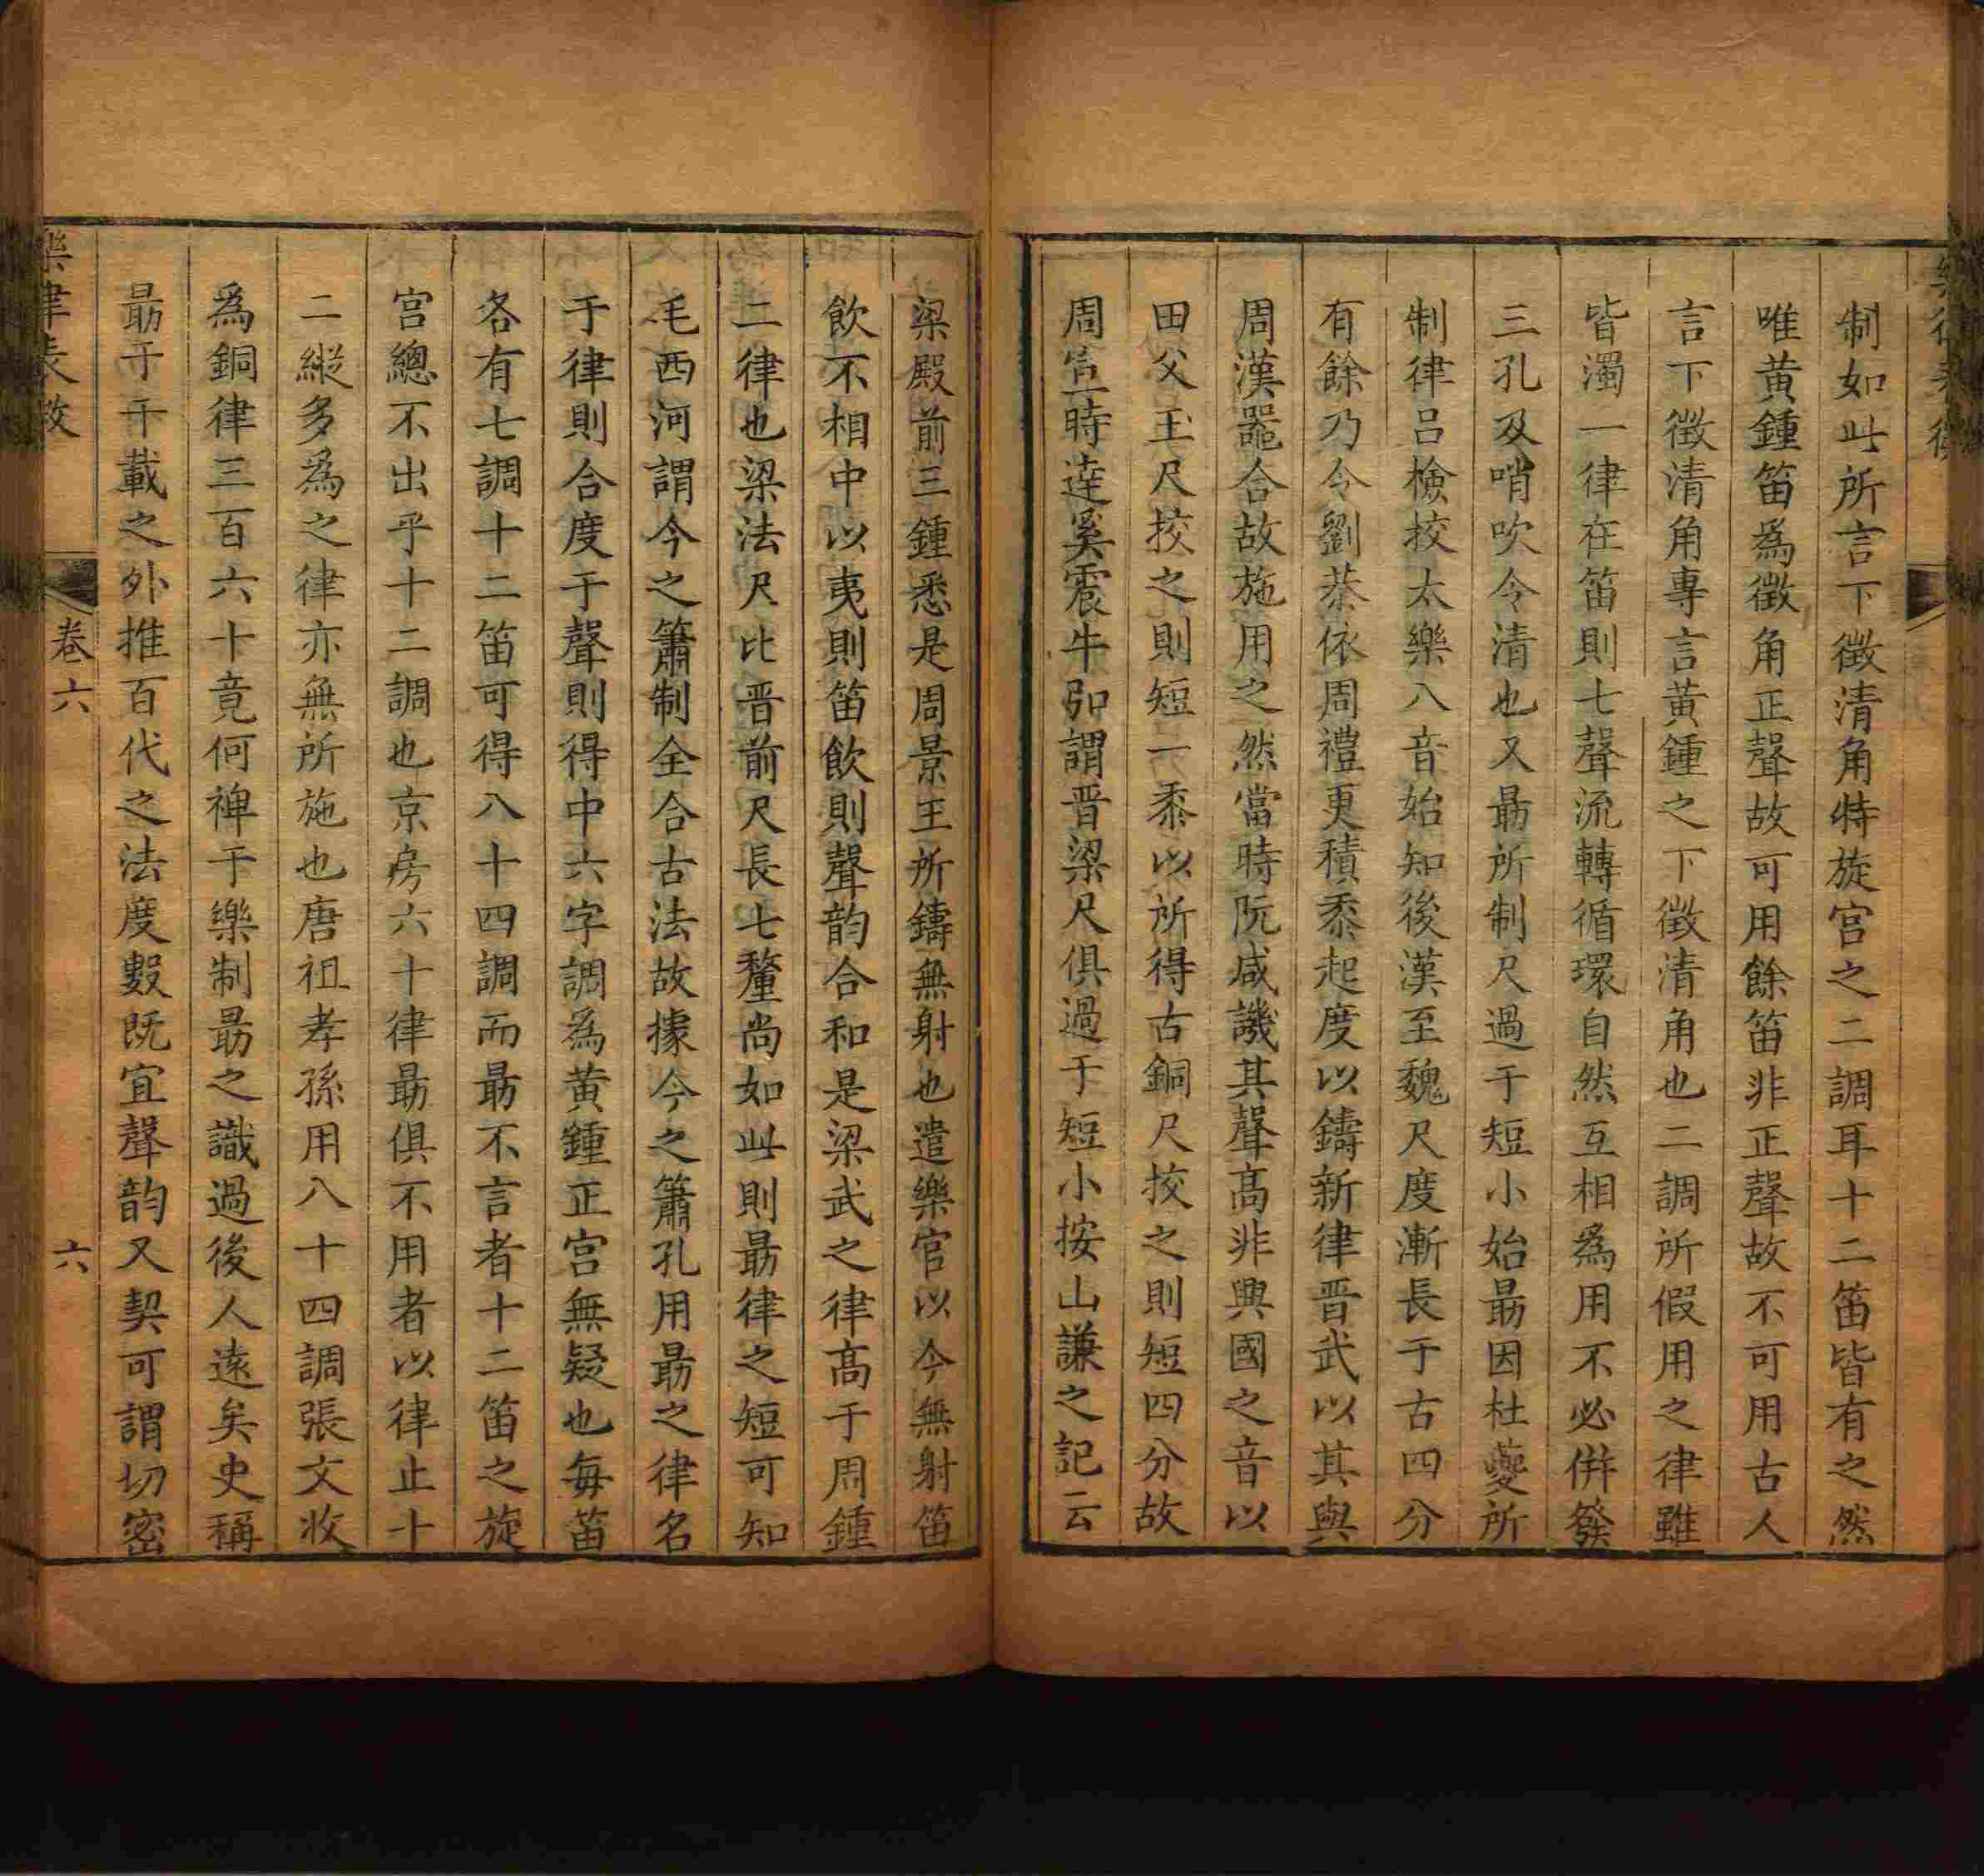 制如此所言下徵清角特旋宮之二調耳十二笛皆有之然
唯黃鍾笛爲徵角正聲故可用餘笛非正聲故不可用古人
言下徵清角專言黃鍾之下徵清角也二調所假用之律雖
皆濁一律在笛則七聲流轉循環自然互相爲用不必倂發
三孔及哨吹令清也又勗所制尺過于短小始勗因杜夔所
制律呂檢挍太樂八音始知後漢至魏尺度漸長于古四分
有餘乃令劉恭依周禮更積黍起度以鑄新律晉武以其與
周漢器合故施用之然當時阮咸譏其聲高非興國之音以
田父玉尺挍之則短一黍以所得古銅尺挍之則短四分故
周宣時達奚震牛弘謂晋梁尺俱過于短小按山謙之記云
梁殿前三鍾悉是周景王所鑄無射也遣樂官以今無射笛
飲不相中以夷則笛飲則聲韵合和是梁武之律高于周鍾
二律也梁法尺比晋前尺長七釐尚如此則勗律之短可知
毛西河謂今之簫制全合古法故據今之簫孔用勗之律名
于律則合度于聲則得中六字調爲黃鍾正宮無疑也每笛
各有七調十二笛可得八十四調而勗不言者十二笛之旋
宮總不出乎十二調也京房六十律勗俱不用者以律止十
二縱多爲之律亦無所施也唐祖孝孫用八十四調張文收
爲銅律三百六十竟何裨于樂制勗之識過後人遠矣史稱
勗于千載之外推百代之法度數既宜聲韵又契可謂切密
樂律表微
卷六
六